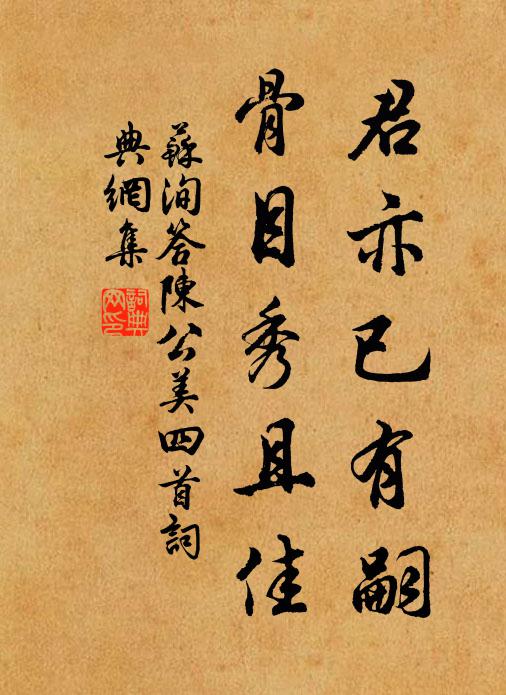 君亦已有嗣
骨目秀且佳
蘇洵答陳公美四首詞
典網集
詞典
网印